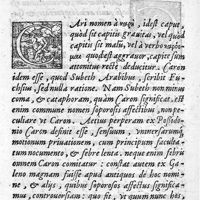 CAri nomen à κάρη, idest caput,
quòd sit capitis grauitas, vel quòd
capitis sit malū, vel à verbo
quod est aggrauor, capitis cum
attonitu recte deducitur. Caron
idem esse, quod Subeth Arabibus, scribit Fu-
chsius, sed nulla ratione. Nam Subeth non minus
coma, & cataphoram, quàm Caron significat, est
enim commune nomen soporosi affectus, non pe-
culiare vt Caron. Aetius perperam ex Posidonio
Caron definit esse, sensuum, vniuersarumq́;
motionum priuationem, cum principum faculta-
tum nocumento, & febre lenta. neque enim febris
omnem Caron comitatur: constat autem ex Ga-
leno magnam fuisse apud antiquos de hoc nomi-
ne, & alijs, quibus soporosos affectus significa-
mus, controuersiam: quo fit, vt quum nunc hos,